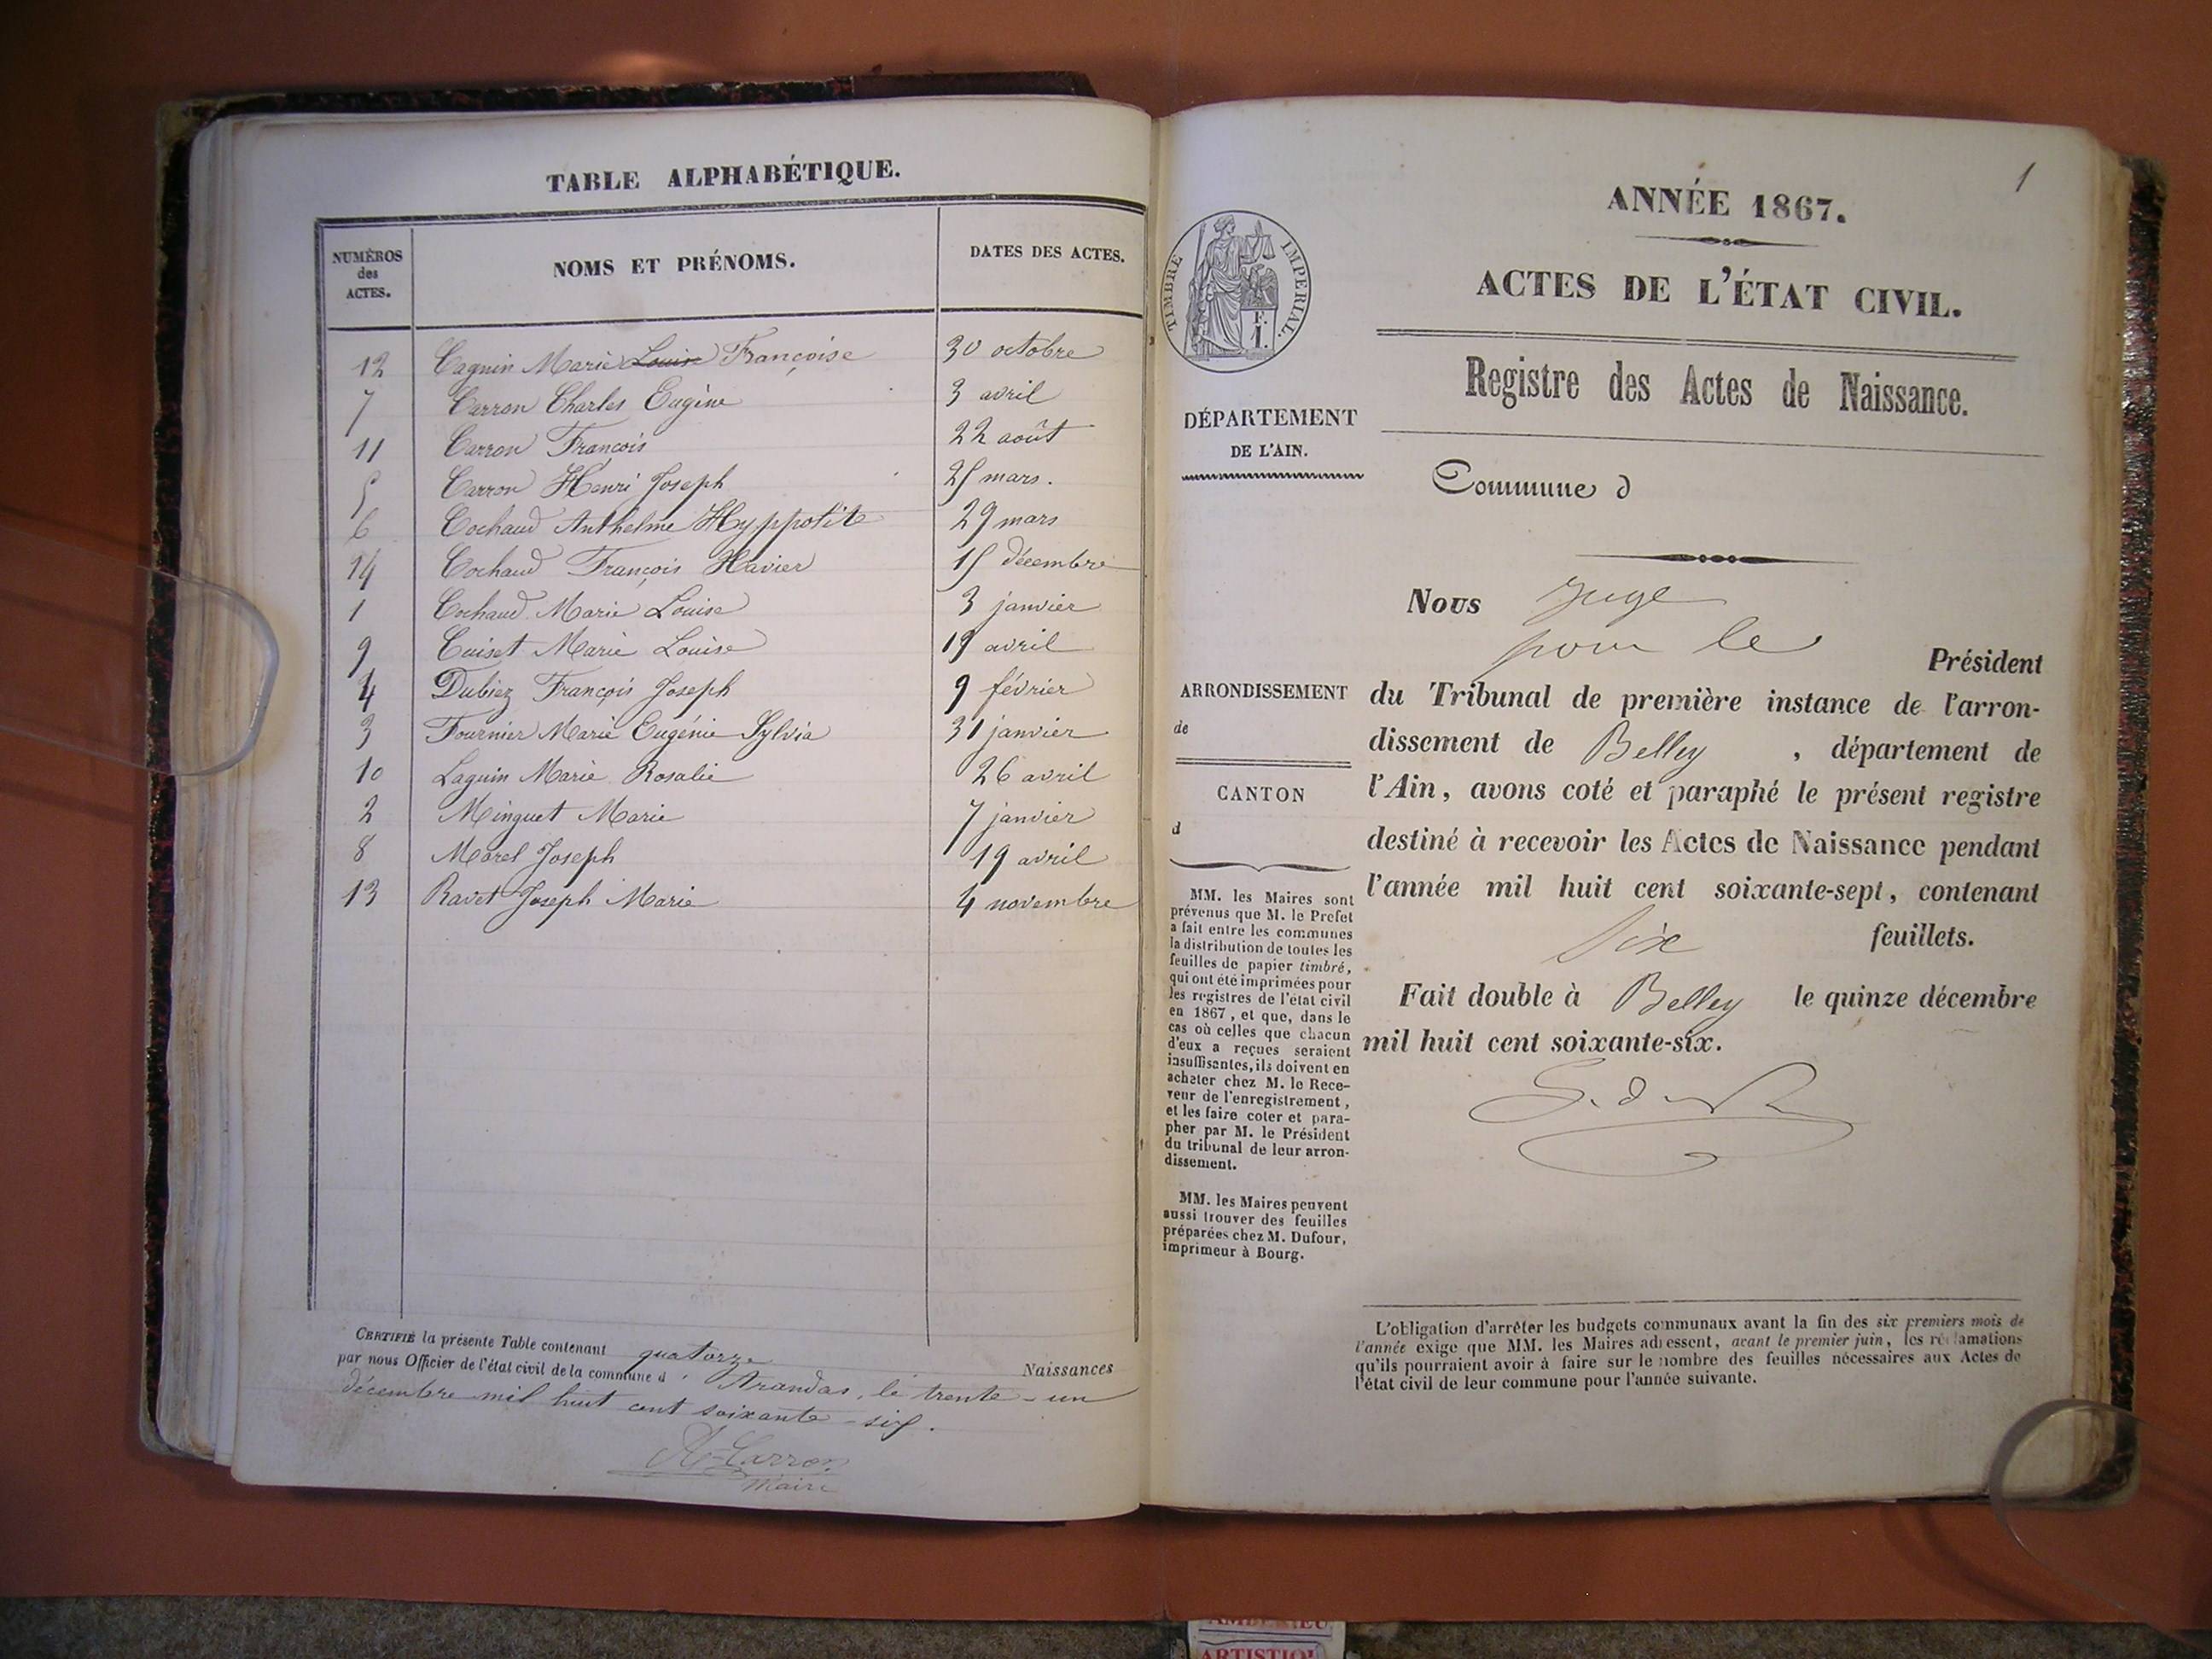 TABLE ALPHABÉTIQUE.
NUMÉROS des ACTES. NOMS ET PRÉNOMS. DATES DES ACTES.
12 Cagnin Marie Louise Françoise 30 octobre
7 Carron Charles Eugène 3 avril
11 Carron François 22 août
5 Carron Henri Joseph 25 mars.
6 Cochaud Anthelme Hyppolite 29 mars
14 Cochaud François Xavier 15 décembre
1 Cochaud Marie Louise 3 janvier
9 Cuiset Marie Louise 19 avril
4 Dubiez François Joseph 9 février
3 Fournier Marie Eugénie Sylvia 31 janvier
10 Laguin Marie Rosalie 26 avril
2 Minguet Marie 7 janvier
8 Morel Joseph 19 avril
13 Ravet Joseph Marie 4 novembre
CERTIFIÉ la présente Table contenant quatorze Naissances
par nous Officier de l'état civil de la commune d'Arandas, le trente-un
décembre mil huit cent soixante-six.
Carron
Maire
1
ANNÉE 1867.
ACTES DE L'ÉTAT CIVIL.
Registre des Actes de Naissance.
TIMBRE IMPERIAL.
F.
1.
DÉPARTEMENT
DE L'AIN.
ARRONDISSEMENT
de
CANTON
d
MM. les Maires sont
prévenus que M. le Préfet
a fait entre les communes
la distribution de toutes les
feuilles de papier timbré,
qui ont été imprimées pour
les registres de l'état civil
en 1867, et que, dans le
cas où celles que chacun
d'eux a reçues seraient
insuffisantes, ils doivent en
acheter chez M. le Rece-
veur de l'enregistrement,
et les faire coter et para-
pher par M. le Président
du tribunal de leur arron-
dissement.
MM. les Maires peuvent
aussi trouver des feuilles
préparées chez M. Dufour,
imprimeur à Bourg.
Commune d
Nous Juge
pour le Président
du Tribunal de première instance de l'arron-
dissement de Belley, département de
l'Ain, avons coté et paraphé le présent registre
destiné à recevoir les Actes de Naissance pendant
l'année mil huit cent soixante-sept, contenant
six feuillets.
Fait double à Belley le quinze décembre
mil huit cent soixante-six.
L'obligation d'arrêter les budgets communaux avant la fin des six premiers mois de
l'année exige que MM. les Maires adressent, avant le premier juin, les réclamations
qu'ils pourraient avoir à faire sur le nombre des feuilles nécessaires aux Actes de
l'état civil de leur commune pour l'année suivante.